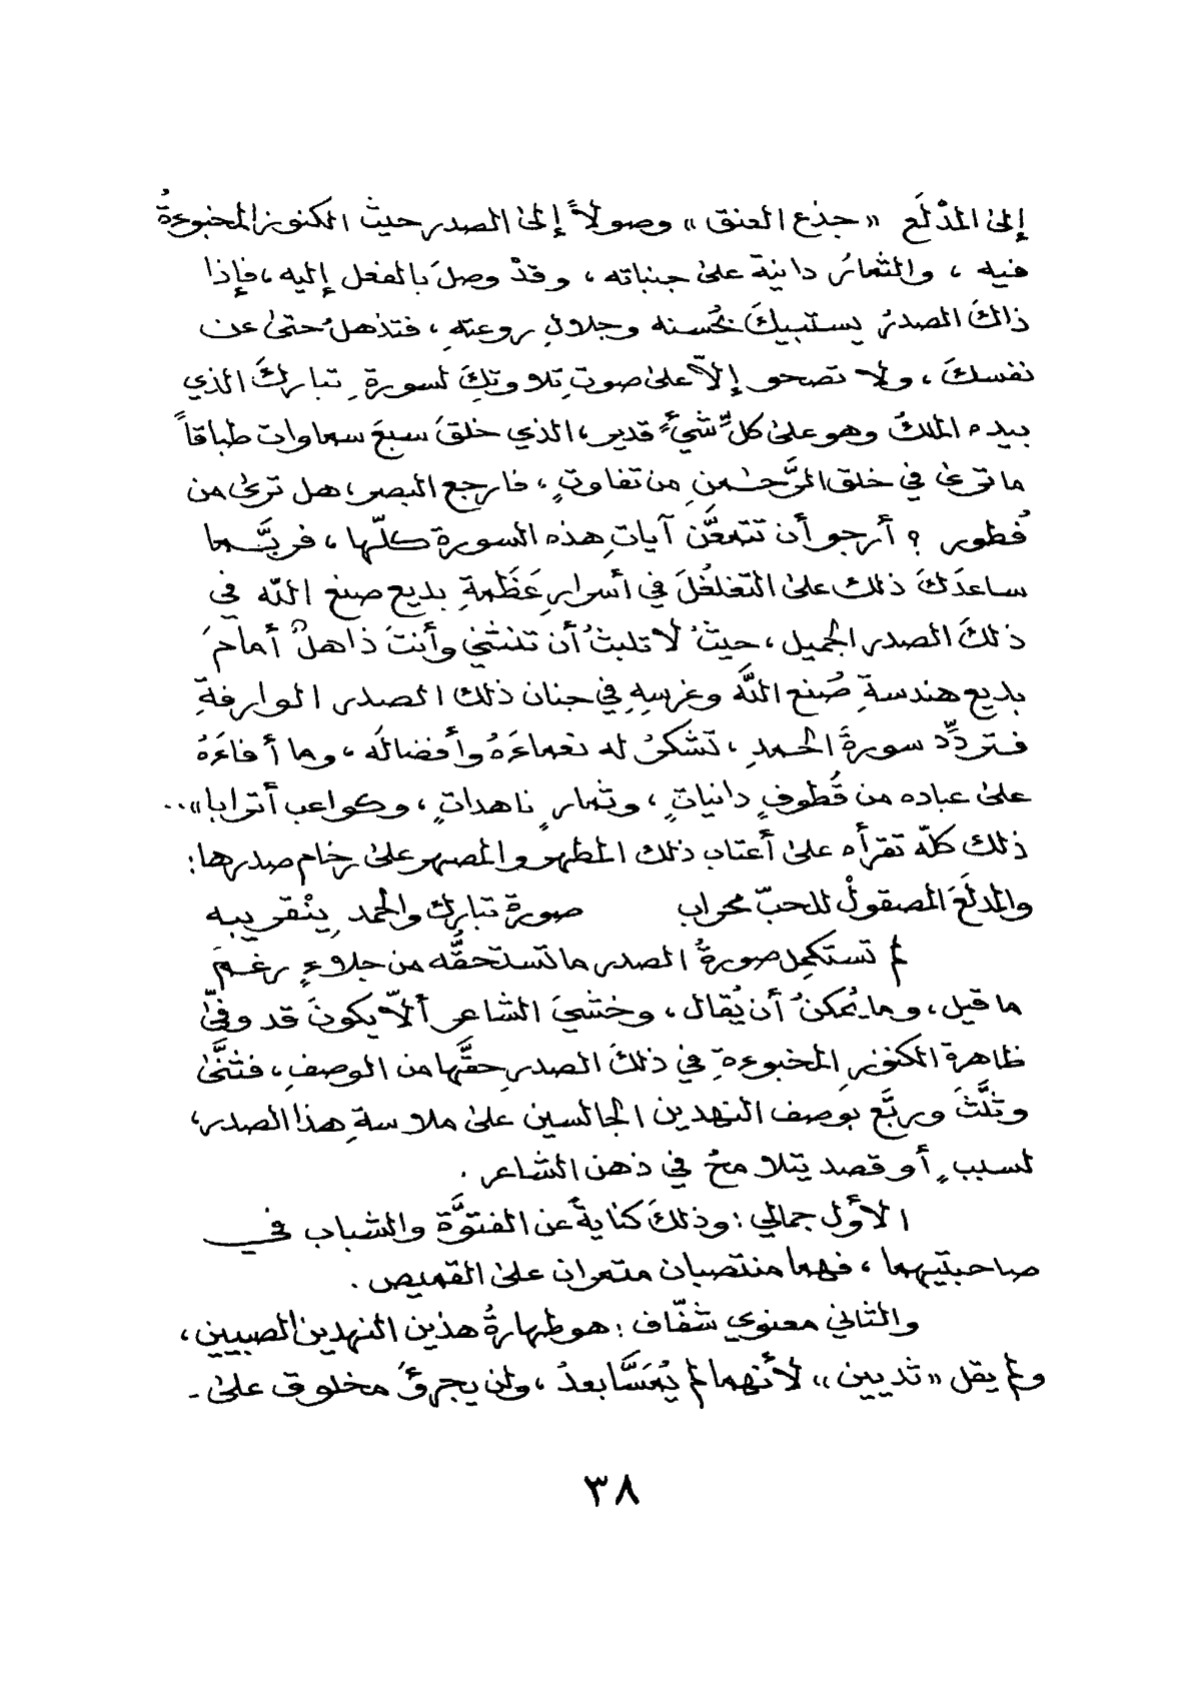 إلىٰ المدْلَع «جذع العنق» وصولاً إلىٰ الصدر حيثُ الكنوز المخبوءةُ
فيه ، والثمارُ دانية علىٰ جنباته ، وقدْ وصلَ بالفعل إليه ، فإذا
ذاكَ الصدرُ يستبيكَ بحُسنه وجلالِ روعتهِ ، فتذهلُ حتىٰ عن
نفسكَ ، ولا تصحو إلاّ علىٰ صوتِ تلاوتِكَ لسورةِ تباركَ الذي
بيده الملكُ وهو علىٰ كلِّ شيءٍ قدير ، الذي خلقَ سبعَ سماوات طباقاً
ما ترىٰ في خلق الرَّحمٰنِ من تفاوتٍ ، فارجع البصر ، هل ترىٰ من
فُطور ؟ أرجو أن تتمعَّن آياتِ هذه السورة كلّها ، فربَّما
ساعدَكَ ذلك علىٰ التغلغُلَ في أسرارِ عَظَمةِ بديع صنع اللّه في
ذلكَ الصدر الجميل ، حيثُ لا تلبثُ أن تنثني وأنتَ ذاهلٌ أمامَ
بديع هندسةِ صُنع اللَّه وغرسِهِ في جنان ذلك الصدر الوارفةِ
فتردِّد سورةَ الحمدِ ، تشكرُ له نعماءَهُ وأفضالَه ، وما أفاءَهُ
علىٰ عباده من قُطوفٍ دانياتٍ ، وثمارٍ ناهداتٍ ، وكواعب أترابا» ..
ذلك كلّه تقرأه علىٰ أعتاب ذلك المطهو والمصهو علىٰ رخام صدرها :
والمدلَعَ المصقولْ للحبّ محراب صورة تبارك والحمدِ ينْقريبه
لم تستكمِل صورةُ الصدر ما تستحقُّه من جلاءٍ رغمَ
ما قيل ، وما يُمكنُ أن يُقال ، وخشيَ الشاعر ألاّ يكونَ قد وفّىٰ
ظاهرة الكنوزِ المخبوءةِ في ذلكَ الصدرِ حقَّها من الوصفِ ، فثنَّىٰ
وثلَّثَ وربَّع بوَصف النهدين الجالسين علىٰ ملاسةِ هذا الصدر ،
لسببٍ أو قصد يتلامحُ في ذهن الشاعر .
الأوَّل جمالي : وذلكَ كنايةً عن الفتوَّة والشباب في
صاحبتيهما ، فهما منتصبان متمران علىٰ القميص .
والثاني معنوي شفّاف : هو طهارةُ هذين النهدين الصبيين ،
ولم يقل «ثديين» ، لأنهما لم يُمَسَّا بعدُ ، ولن يجرؤَ مخلوق علىٰ -
٣٨